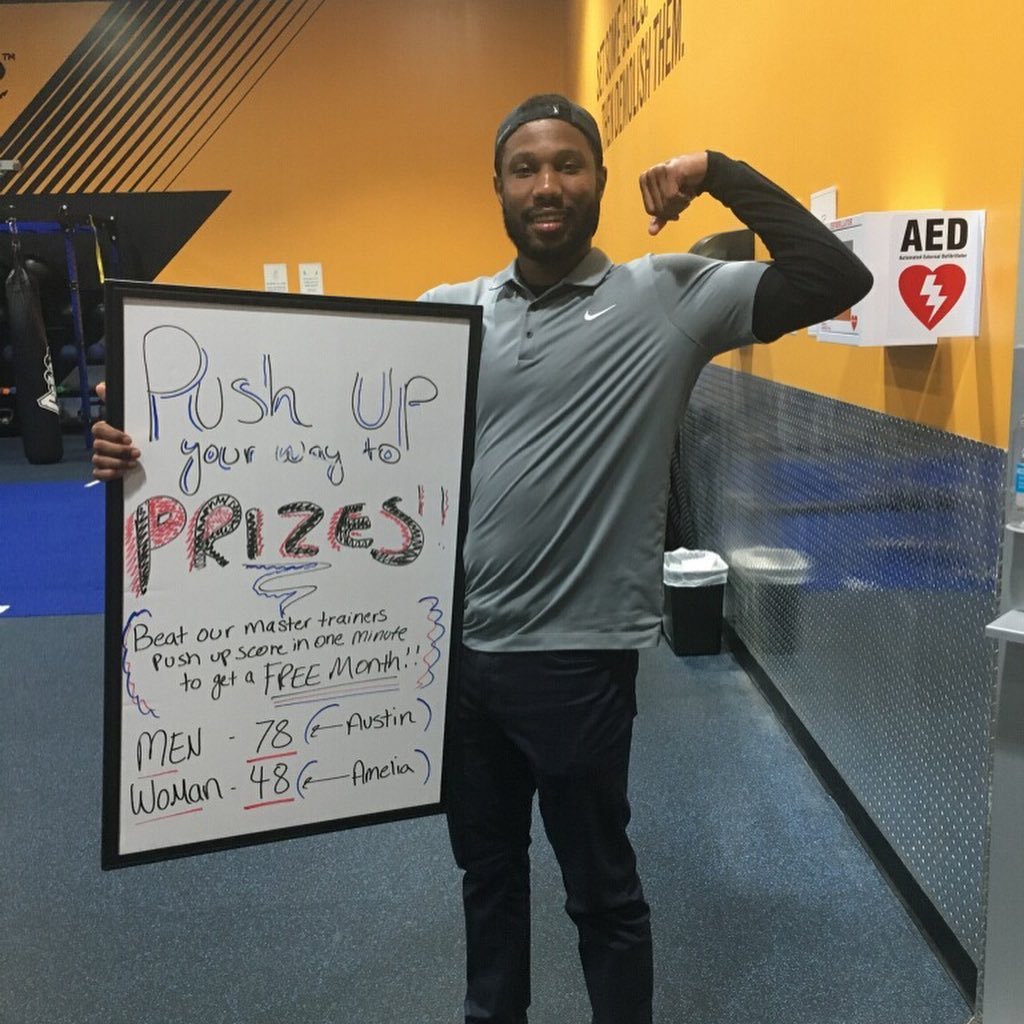 SET SOME GOALS.
THEN DEMOLISH THEM.
AED
Automated External Defibrillator
Push UP
your way to
PRIZES!!
Beat our master trainers
Push up score in one minute
to get a FREE Month!!
MEN - 78 (← Austin)
WoMan - 48 (← Amelia)
TM